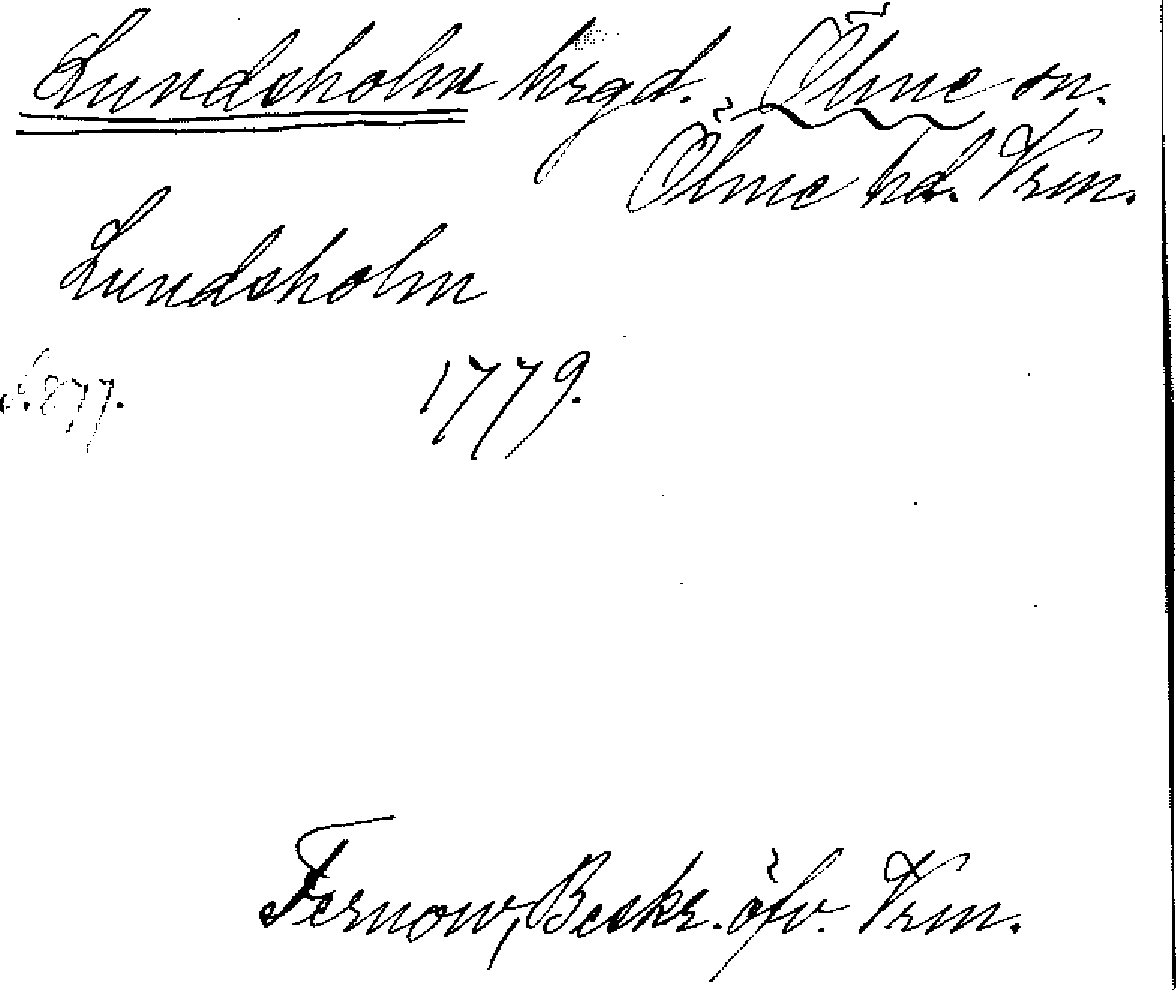 Lundsholm hrgd. Ölme sn.
Ölme hd. Vrm.
Lundsholm
s. 877. 1779.
Fernow, Beskr. öfv. Vrm.